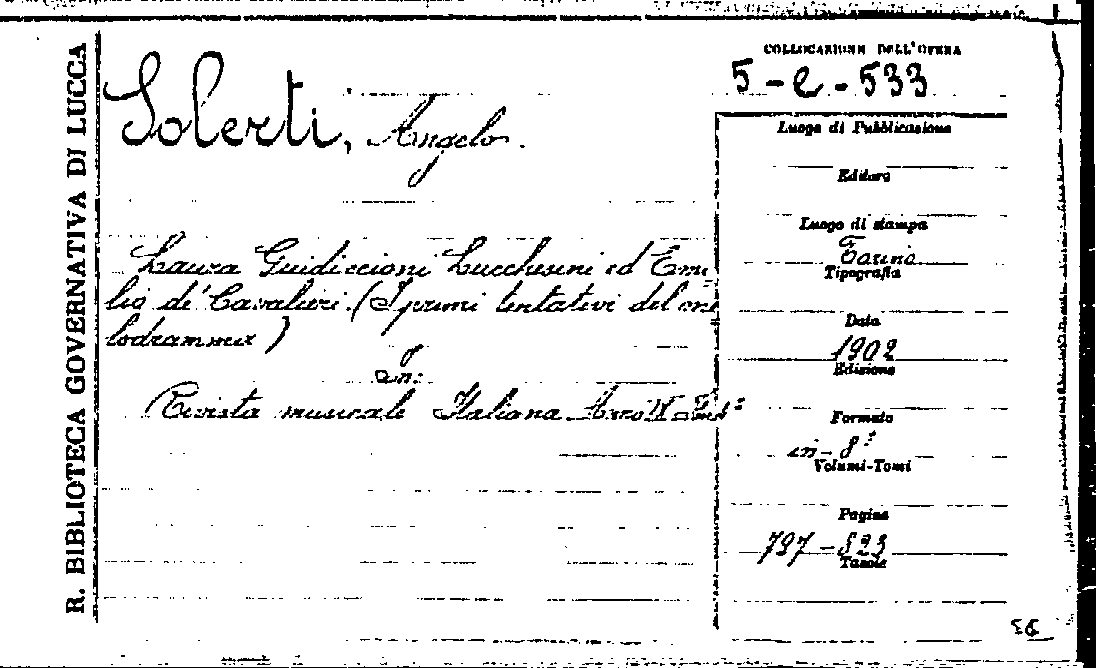 R. BIBLIOTECA GOVERNATIVA DI LUCCA
COLLOCAZIONE DELL'OPERA
5-e-533
Solerti, Angelo.
Laura Guidiccioni Lucchesini ed Emi=
lio de' Cavalieri. (I primi tentativi del me
lodramma)
in:
Rivista musicale Italiana Anno IX
Luogo di Pubblicazione
Editore
Luogo di stampa
Torino
Tipografia
Data
1902
Edizione
Formato
in-8°
Volumi-Tomi
Pagine
797-823
Tavole